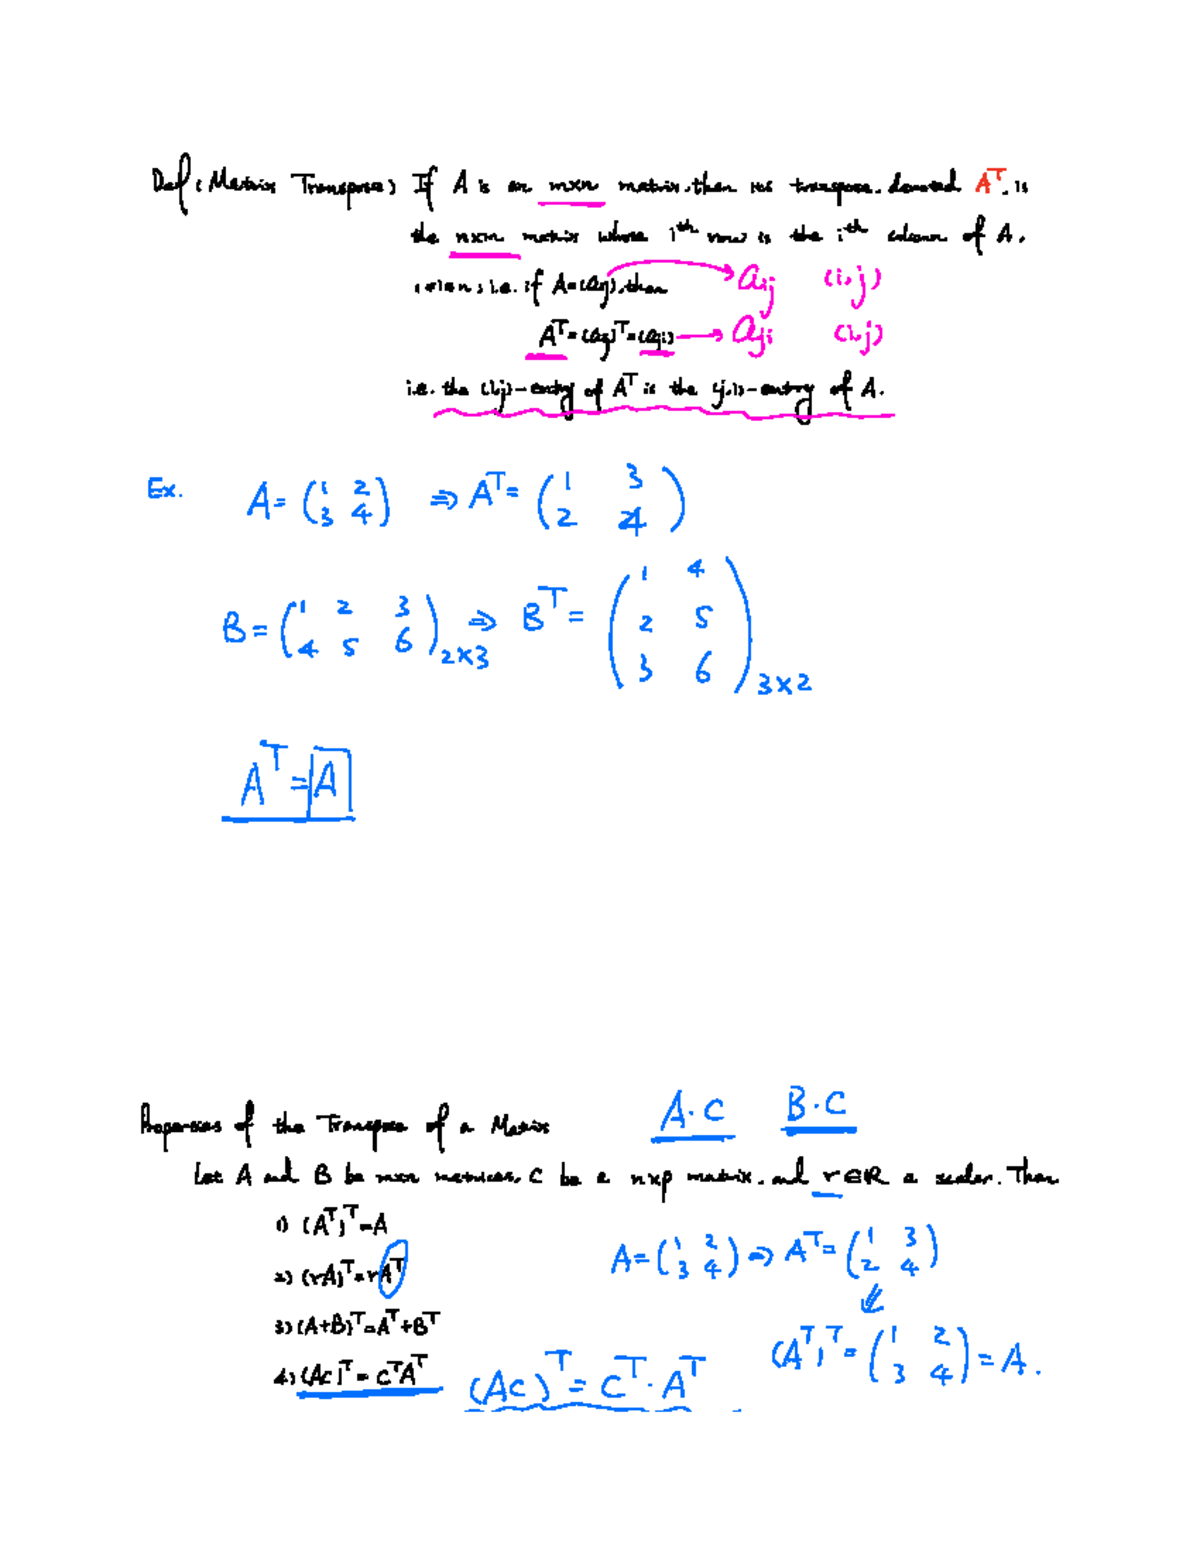 Def (Matrix Transpose) If A is an mxn matrix, then its transpose, denoted Aᵀ, is
the nxm matrix whose iᵗʰ row is the iᵗʰ column of A,
i.e. if A=(aij), then aij (i,j)
Aᵀ=(aij)ᵀ=(aji) → aji (i,j)
i.e. the (i,j)-entry of Aᵀ is the (j,i)-entry of A.
Ex. A= (1 2 ⇒ Aᵀ= (1 3
3 4) 2 4)
B = (1 2 3 ⇒ Bᵀ = (1 4
4 5 6) 2×3 2 5
3 6) 3×2
Aᵀ = A
A·C B·C
Properties of the Transpose of a Matrix
Let A and B be mxn matrices, C be a nxp matrix, and r∈R a scalar. Then
1) (Aᵀ)ᵀ=A
2) (rA)ᵀ=rAᵀ
3) (A+B)ᵀ=Aᵀ+Bᵀ
4) (AC)ᵀ= CᵀAᵀ (AC)ᵀ = Cᵀ·Aᵀ
A=(1 2 ⇒ Aᵀ=(1 3
3 4) 2 4)
⇓
(Aᵀ)ᵀ= (1 2
3 4) = A.